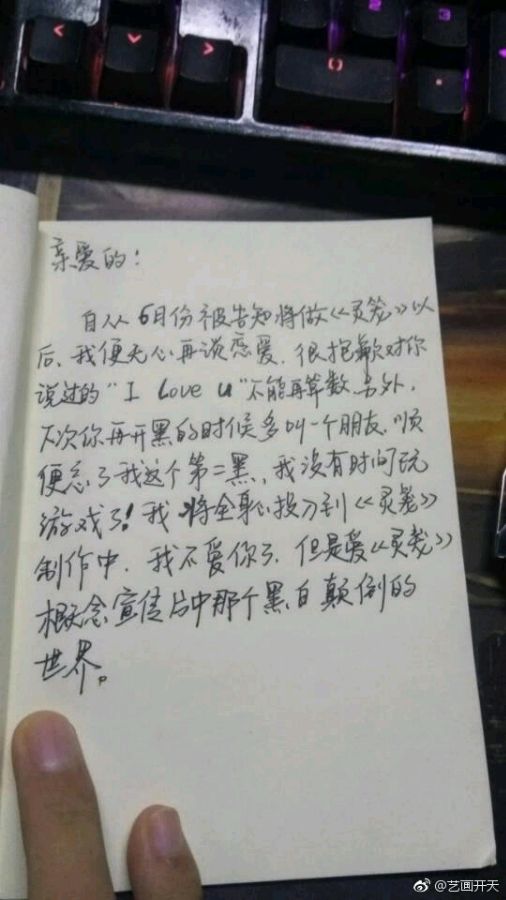 亲爱的！
自从6月份被告知将做《灵笼》以
后，我便无心再谈恋爱，很抱歉对你
说过的“I Love u”不能再算数，另外，
下次你再开黑的时候多叫一个朋友，顺
便忘了我这个第二黑，我没有时间玩
游戏了！我将全职投入到《灵笼》
制作中，我不爱你了，但是爱《灵笼》
概念宣传片中那个黑白颠倒的
世界。
@艺画开天